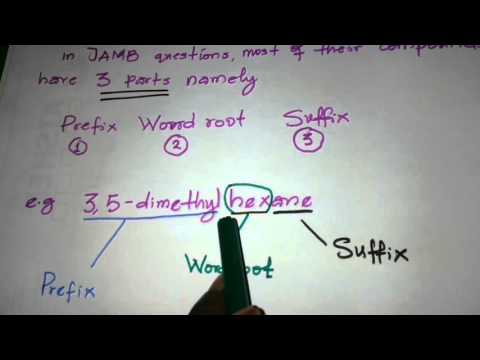 in JAMB questions, most of their compounds
have 3 parts namely
Prefix Word root Suffix
1 2 3
e.g 3,5-dimethyl hexane
Suffix
Word root
Prefix